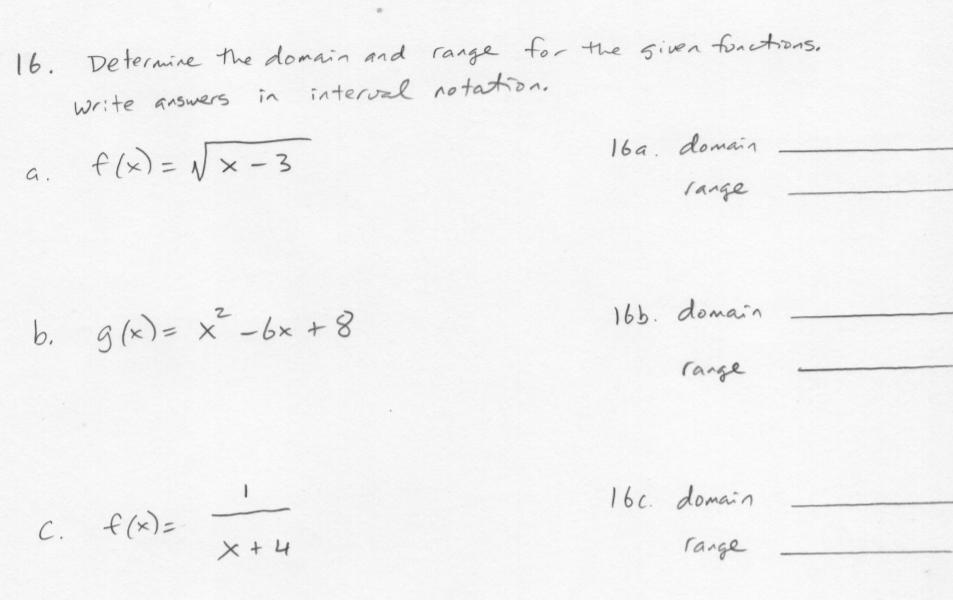 16. Determine the domain and range for the given functions.
Write answers in interval notation.
a. f(x) = √(x - 3)
16a. domain
range
b. g(x) = x² - 6x + 8
16b. domain
range
c. f(x) = 1/(x + 4)
16c. domain
range